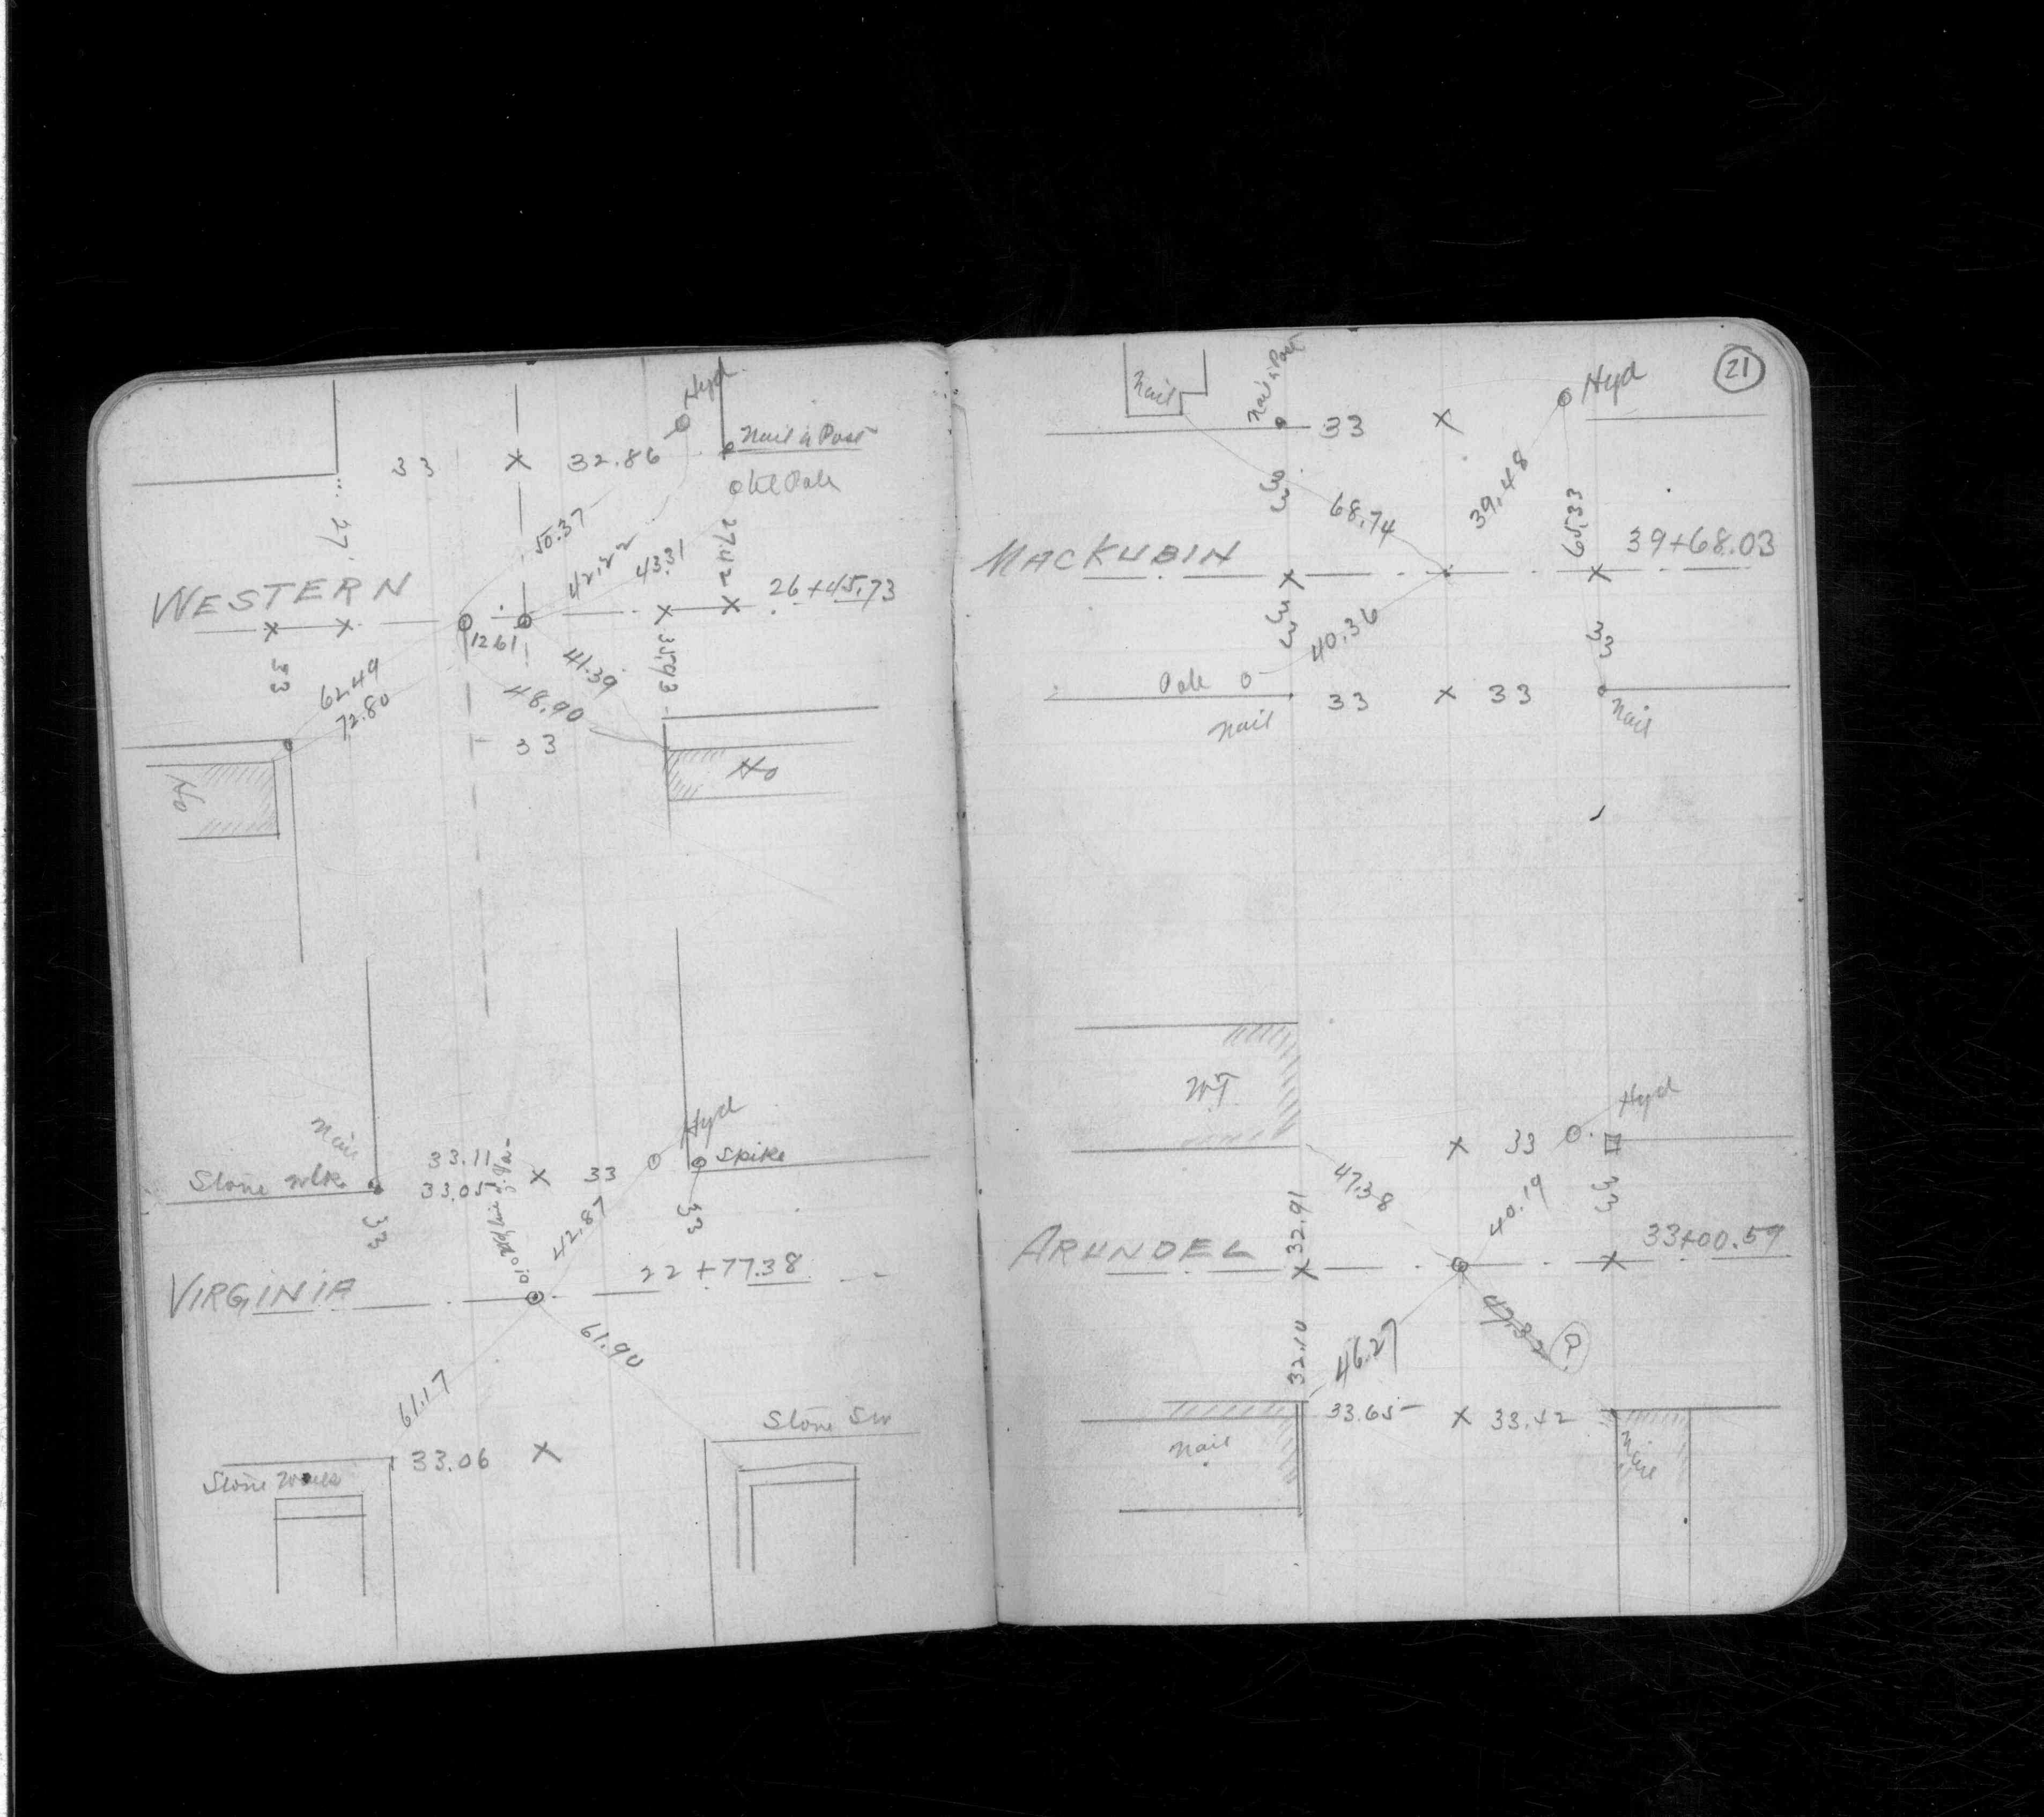 Hyd
33 × 32.86
Nail in Post
Tel Pole
27
50.37
42.22
43.31
27.42
WESTERN
26+45.73
12.61
33
62.49
72.80
41.39
48.90
35.93
33
Ho
Ho
Nail
Hyd
Stone Wlk
33.11
33.05
× 33
Spike
33
42.87
33
VIRGINIA
22+77.38
61.17
61.90
Stone SW
33.06 ×
Stone
21
Nail
Nail in Post
33 ×
Hyd
33
68.74
39.48
65.33
MACKUBIN
39+68.03
33
40.36
33
Pole
33 × 33
Nail
Nail
Hyd
× 33
47.38
40.19
33
32.91
ARUNDEL
33+00.59
32.10
46.27
33.65 × 33.42
Nail
Nail